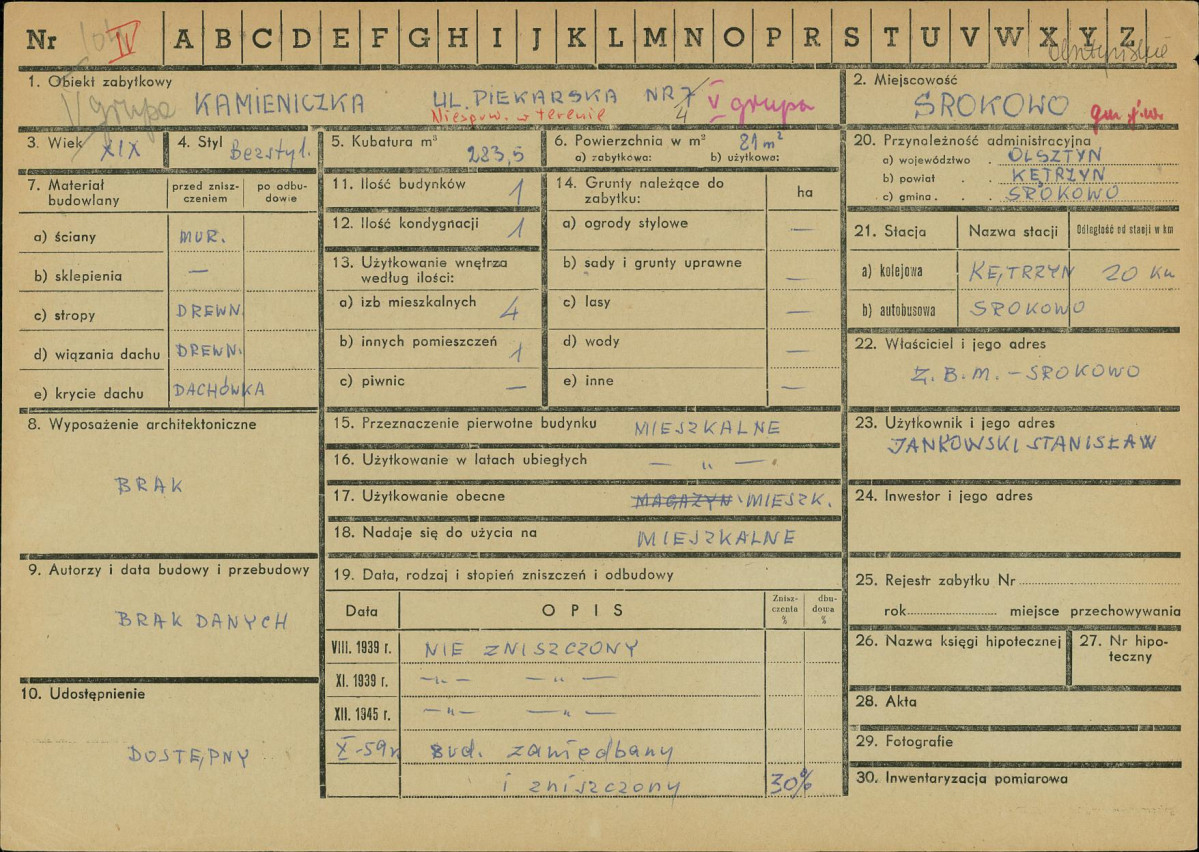 Nr IV A B C D E F G H I J K L M N O P R S T U V W X Y Z
olsztyńskie
1. Obiekt zabytkowy
V grupa KAMIENICZKA UL. PIEKARSKA NR 7 4 V grupa
Niespraw. w terenie
2. Miejscowość
SROKOWO
3. Wiek XIX
4. Styl Bezstyl.
5. Kubatura m³
283,5
6. Powierzchnia w m²
a) zabytkowa: b) użytkowa:
81 m²
20. Przynależność administracyjna
a) województwo . OLSZTYN
b) powiat . . KĘTRZYN
c) gmina . . SROKOWO
7. Materiał budowlany
przed znisz-
czeniem
po odbu-
dowie
a) ściany MUR.
b) sklepienia —
c) stropy DREWN.
d) wiązania dachu DREWN.
e) krycie dachu DACHÓWKA
11. Ilość budynków 1
12. Ilość kondygnacji 1
13. Użytkowanie wnętrza
według ilości:
a) izb mieszkalnych 4
b) innych pomieszczeń 1
c) piwnic —
14. Grunty należące do
zabytku:
ha
a) ogrody stylowe —
b) sady i grunty uprawne —
c) lasy —
d) wody —
e) inne —
21. Stacja Nazwa stacji Odległość od stacji w km
a) kolejowa KĘTRZYN 20 Km
b) autobusowa SROKOWO
22. Właściciel i jego adres
Z. B. M. – SROKOWO
8. Wyposażenie architektoniczne
BRAK
15. Przeznaczenie pierwotne budynku MIESZKALNE
16. Użytkowanie w latach ubiegłych — „ —
17. Użytkowanie obecne MAGAZYN MIESZK.
18. Nadaje się do użycia na MIESZKALNE
23. Użytkownik i jego adres
JANKOWSKI STANISŁAW
24. Inwestor i jego adres
9. Autorzy i data budowy i przebudowy
BRAK DANYCH
10. Udostępnienie
DOSTĘPNY
19. Data, rodzaj i stopień zniszczeń i odbudowy
Data OPIS
Znisz-
czenia
%
dbu-
dowa
%
VIII. 1939 r. NIE ZNISZCZONY
XI. 1939 r. — „ — — „ —
XII. 1945 r. — „ — — „ —
X-59r bud. zaniedbany
i zniszczony 30%
25. Rejestr zabytku Nr
rok miejsce przechowywania
26. Nazwa księgi hipotecznej
27. Nr hipo-
teczny
28. Akta
29. Fotografie
30. Inwentaryzacja pomiarowa